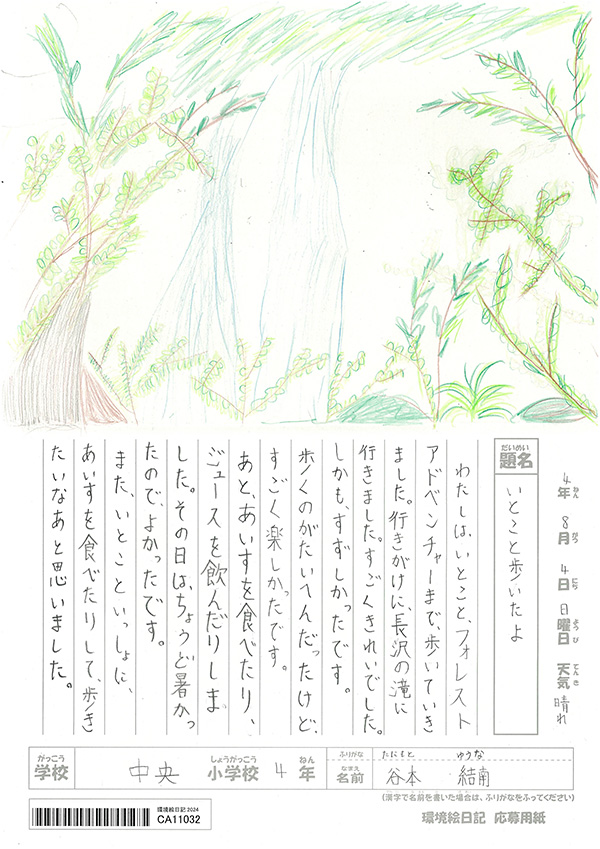 4年 8月 4日 日曜日 天気 晴れ
ねん がつ にち ようび てんき
だいめい
題名
いとこと歩いたよ
わたしは、いとこと、フォレスト
アドベンチャーまで、歩いていき
ました。行きがけに、長沢の滝に
行きました。すごくきれいでした。
しかも、すずしかったです。
歩くのがたいへんだったけど、
すごく楽しかったです。
あと、あいすを食べたり、
ジュースを飲んだりしま
した。その日は、ちょうど暑かっ
たので、よかったです。
また、いとこといっしょに、
あいすを食べたりして、歩き
たいなあと思いました。
がっこう しょうがっこう ねん
学校 中央 小学校 4 年
ふりがな たにもと ゆうな
なまえ
名前 谷本 結南
(漢字で名前を書いた場合は、ふりがなをふってください)
環境絵日記 2024
CA11032
環境絵日記 応募用紙